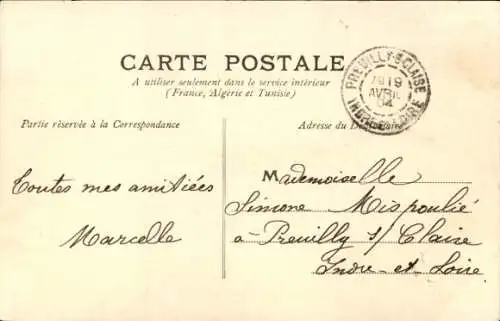 CARTE POSTALE
A utiliser seulement dans le service intérieur
(France, Algérie et Tunisie)
PREUILLY-S-CLAISE
19
AVRIL
04
INDRE-ET-LOIRE
Partie réservée à la Correspondance
Adresse du Destinataire
Toutes mes amitiées
Marcelle
Mademoiselle
Simone Mispoulié
à Preuilly s/ Claise
Indre-et-Loire